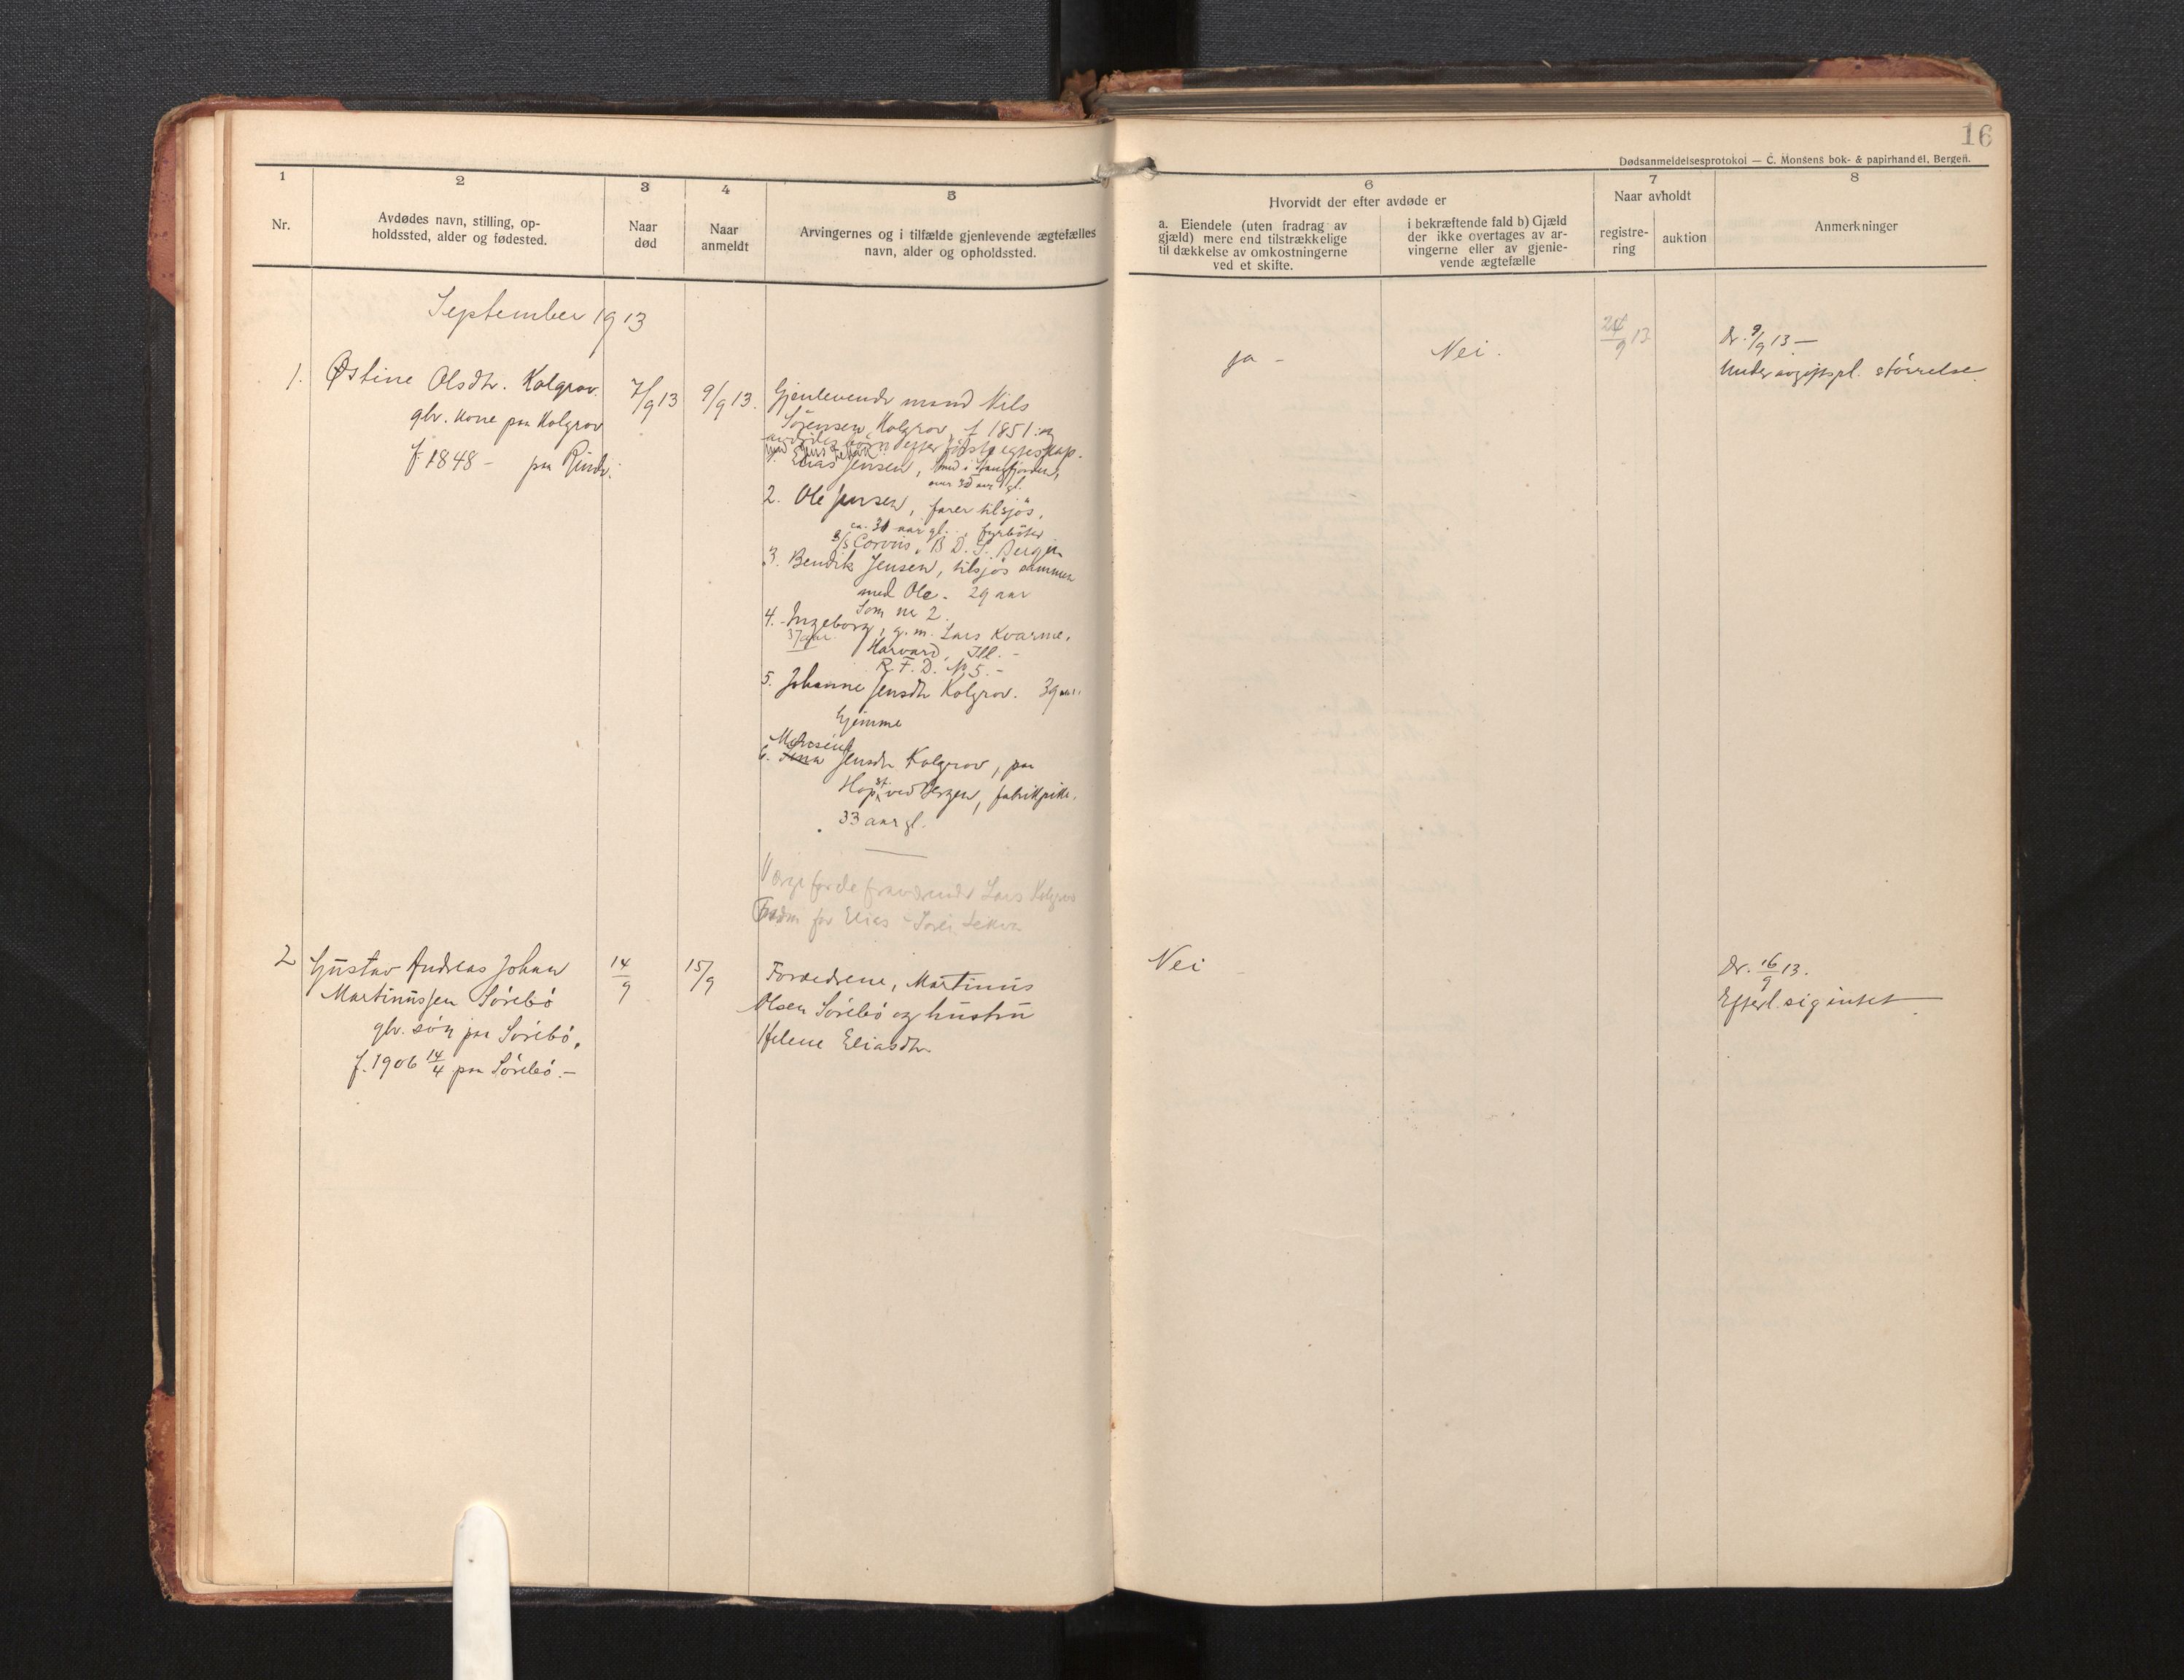 16
Dødsanmeldelsesprotokol — C. Monsens bok- & papirhandel, Bergen.
1
2
3
4
5
6
7
8
Nr.
Avdødes navn, stilling, op-
holdssted, alder og fødested.
Naar
død
Naar
anmeldt
Arvingernes og i tilfælde gjenlevende ægtefælles
navn, alder og opholdssted.
Hvorvidt der efter avdøde er
a. Eiendele (uten fradrag av
gjæld) mere end tilstrækkelige
til dækkelse av omkostningerne
ved et skifte.
i bekræftende fald b) Gjæld
der ikke overtages av ar-
vingerne eller av gjenle-
vende ægtefælle
Naar avholdt
registre-
ring
auktion
Anmerkninger
September 1913
1.
Østine Olsdtr. Kolgrov.
gbr. kone paa Kolgrov
f 1848 - paa
7/9 13
9/9 13.
Gjenlevende mand Nils
Sörensen Kolgrov, f 1851 og
avdödes börn efter förste egteskap.
1. Elias Jensen,
over 30 aar gl.
2. Ole Jensen, farer tilsjös,
ca. 31 aar gl., fyrböter
s/s Corvus, B. D. S. Bergen
3. Bendik Jensen, tilsjös sammen
med Ole. 29 aar
Som nr 2.
4. Ingeborg, g. m. Lars Kvarme,
37 aar. Harvard, Ill. -
R. F. D. No 5. -
5. Johanne Jensdtr Kolgrov. 39 aar.
hjemme
6. Jensdtr Kolgrov, paa
Hop st. ved Bergen, fabrikpike,
33 aar gl.
Verge for de fraværende Lars Kolgrov
for Elias
ja -
Nei.
24/9 13
Dr. 9/9 13 —
Under avgiftspl. størrelse
2
Gustav Andreas Johan
Martinussen Sörebö
gbr. sön paa Sörebö,
f. 1906 14/4 paa Sörebö. -
14/9
15/9
Forældrene, Martinus
Olsen Sörebö og hustru
Helene Eliasdtr.
Nei
Dr. 16/9 13.
Efterl. sig intet